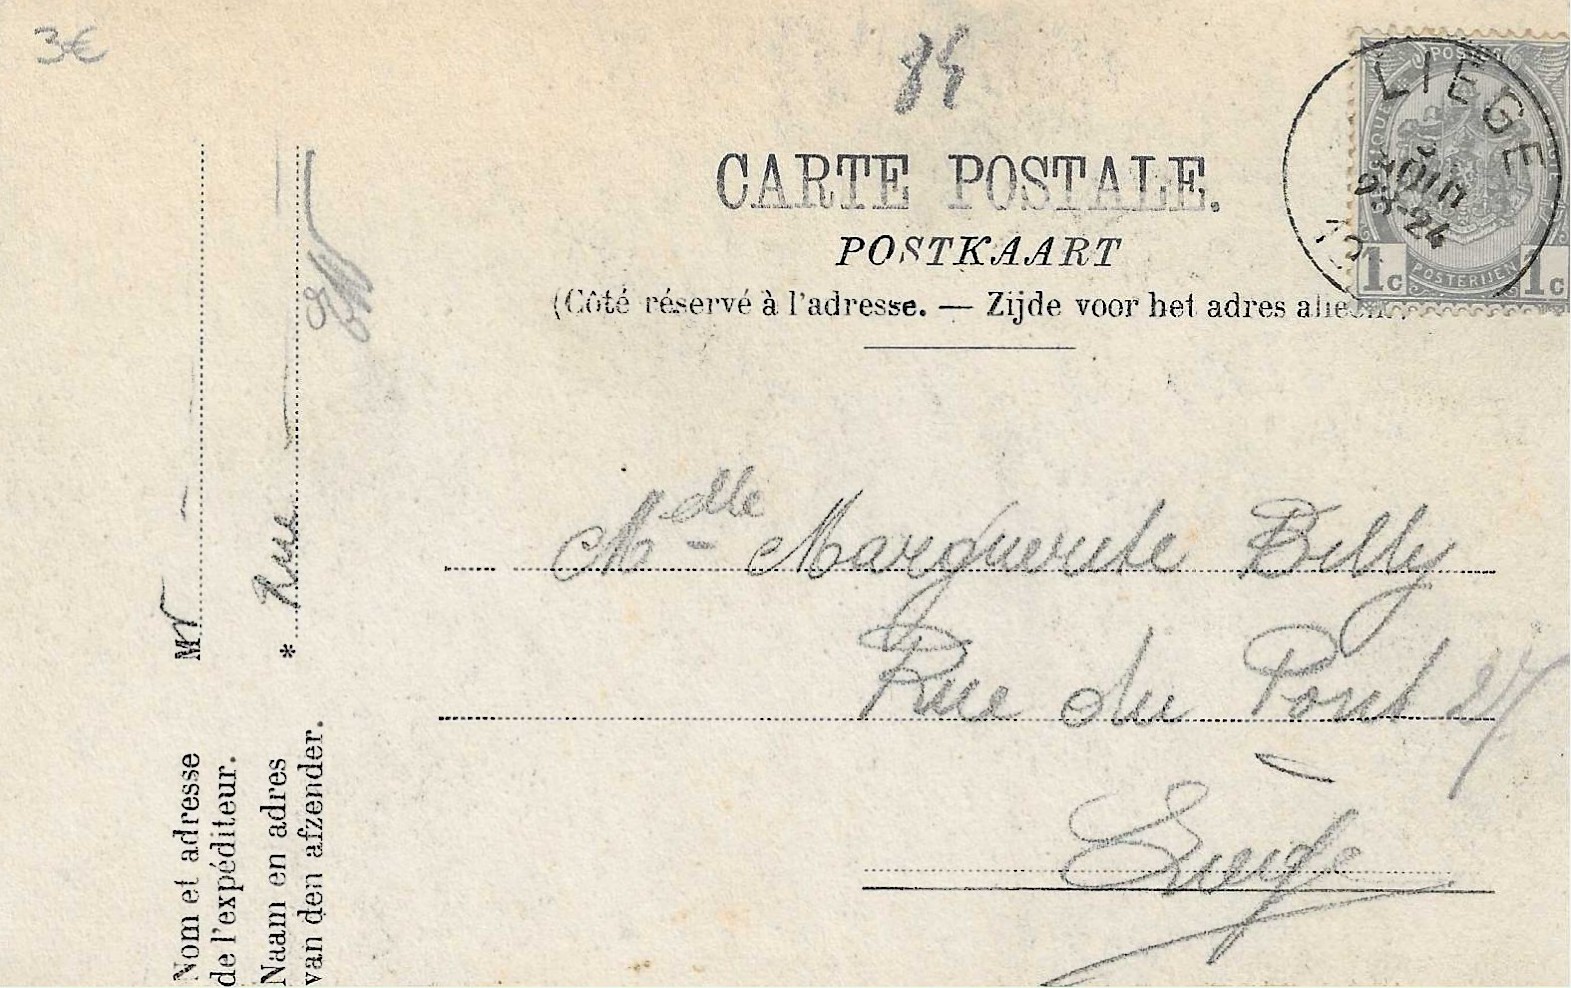 3€
84
CARTE POSTALE.
POSTKAART
(Côté réservé à l'adresse. — Zijde voor het adres alleen.)
LIEGE
AOUT
23-24
POSTES
POSTERIJEN
1c 1c
Mdlle Marguerite Billy
Rue du Pont 27
Liége
Mr
* Rue
Nom et adresse
de l'expéditeur.
Naam en adres
van den afzender.